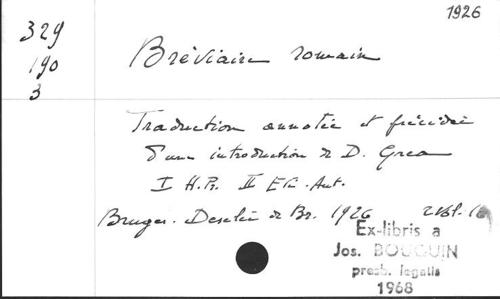 1926
329
190
3
Bréviaire romain
Traduction annotée et précédée
d'une introduction de D. Grea
I H.Pr. II Eté-Aut.
Bruges. Desclée de Br. 1926 2 vol. 16
Ex-libris a
Jos. BOUGUIN
presb. legatis
1968